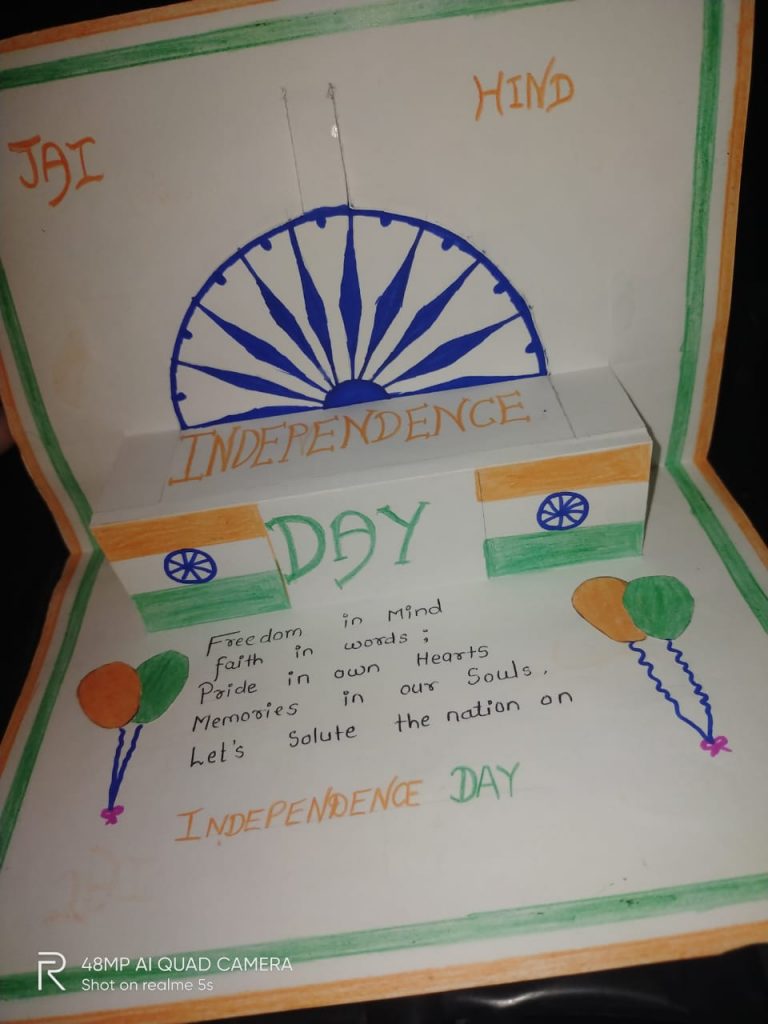 JAI HIND
INDEPENDENCE
DAY
Freedom in Mind
faith in words ;
Pride in own Hearts
Memories in our Souls.
Let's Solute the nation on
INDEPENDENCE DAY
R 48MP AI QUAD CAMERA
Shot on realme 5s